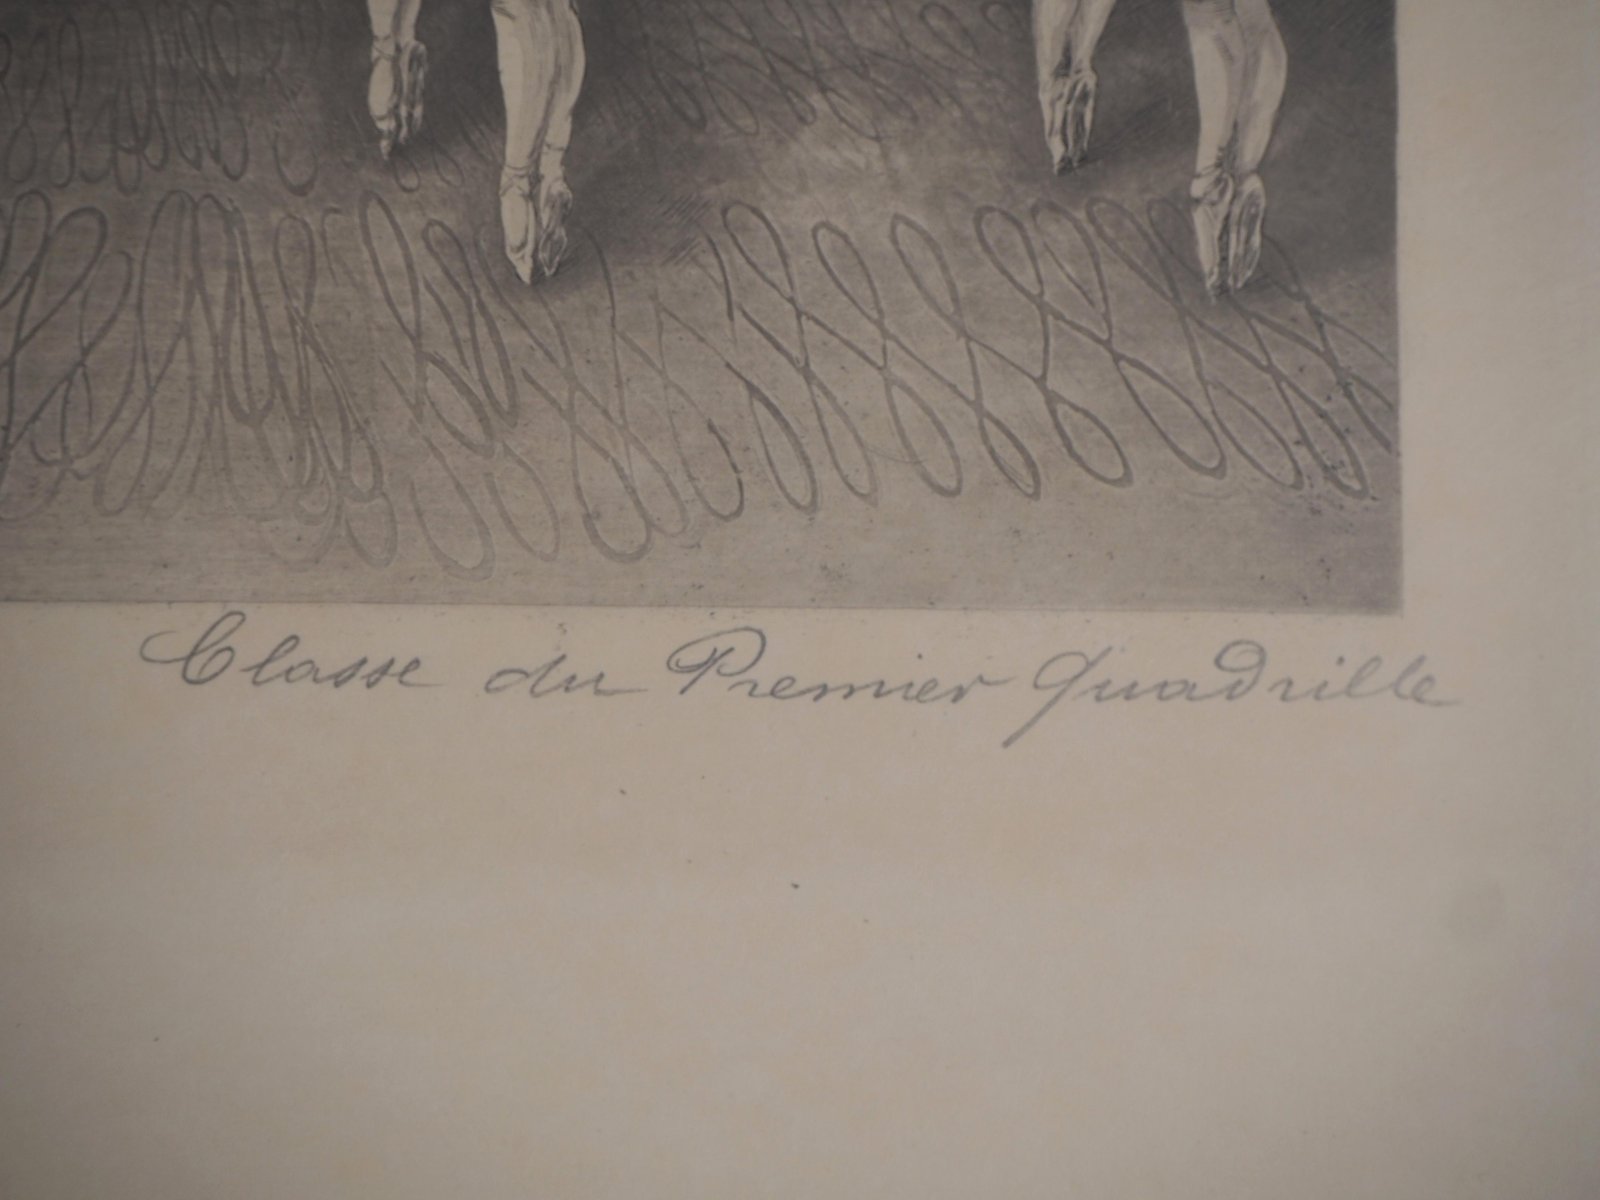 Classe du Premier Quadrille